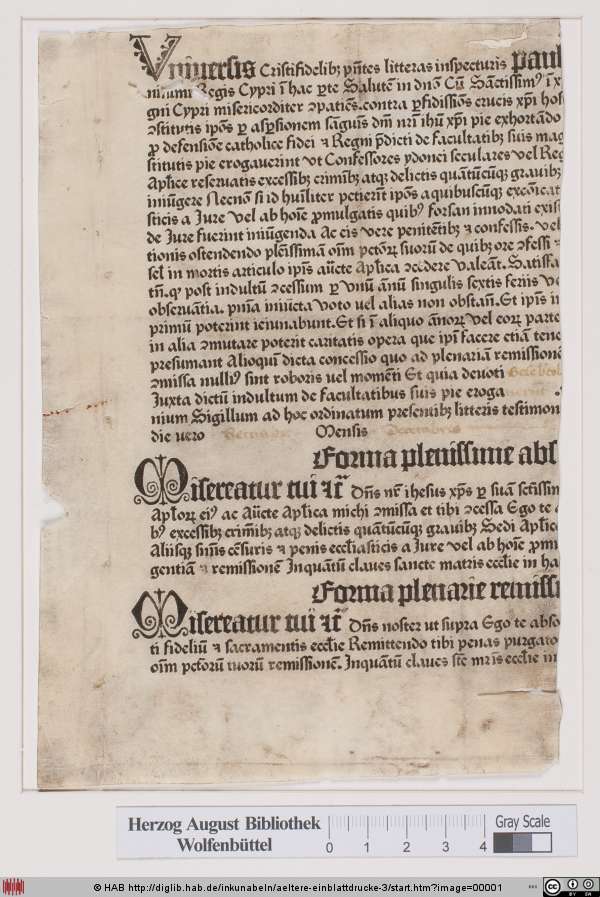 Vniuersis Cristifidelibꝫ pñtes litteras inspecturis paul
Regis Cypri ĩ hac ꝑte Salutẽ in dño Cũ Sãctissimꝰ ĩ x
gni Cypri misericorditer ꝯpatiẽs. contra ꝑfidissiõs crucis xp̃i hos
ꝯstitutis ip̃os ꝑ asꝑsionem sãguis dm̃ nr̃i ihũ xp̃i pie exhortãdo
ꝓ defensiõne catholice fidei ⁊ Regni p̃dicti de Facultatibꝫ suis mag
stitutis pie erogauerint vt Confessores ydonei seculares vel Reg
Aplĩce reseruatis excessibꝫ crimĩbꝫ atqꝫ delictis quãtũcũqꝫ grauibꝫ
iniũgere Necnõ si id hũiliter petierint ip̃os a quibuscũqꝫ excõicat
sticis a Jure vel ab hoĩe ꝓmulgatis quibꝰ forsan innodati exis
de Jure fuerint iniũgenda Ac eis vere penitẽtibꝫ ⁊ confessis. vel
tionis ostendendo plẽissimã oĩm pctõꝝ suorũ de quibꝫ ore ꝯfessi ⁊
sel in mortis articulo ip̃is aucte Aplĩca ꝯcedere valeãt. Satisfa
tñ. qꝫ post indultũ ꝯcessum ꝑ vnũ ãnũ singulis sextis feriis v
obseruãtia. pñia iniũcta voto vel alias non obstañ. Et ip̃is ĩ
primũ poterint ieiunabunt. Et si ĩ aliquo ãnoꝝ vel eoꝝ parte
in alia ꝯmutare poterit caritatis opera que ip̃i facere etiã tene
presumant Alioqui dicta concessio quo ad plenariam remissionẽ
ꝯmissa nulliꝰ sint roboris uel momẽti Et quia deuoti
Juxta dictũ indultum de facultatibus suis pie eroga
nium Sigillum ad hoc ordinatum presentibꝫ litteris testimon
die uero Mensis
Forma plenissime abs
Misereatur tui ⁊c̃ Dñs nr̃ ihesus xp̃s ꝑ suã sctĩssim
Aploꝝ eiꝰ ac Aucte Aplĩca michi ꝯmissa et tibi ꝯcessa Ego te a
bꝰ excessibꝫ crimĩbꝫ atqꝫ delictis quãtũcũqꝫ grauibꝫ Sedi Aplĩc
Aliisqꝫ suĩs cẽsuris ⁊ penis eccliasticis a Jure vel ab hoĩe ꝓm
gentiã ⁊ remissionẽ Inquãtũ claues sancte matris ecclie in ha
Forma plenarie remissi
Misereatur tui ⁊c̃ Dñs noster ut supra Ego te abso
ti fideliũ ⁊ sacramentis ecclie Remittendo tibi penas purgato
oĩm pctõrũ tuorũ remissionẽ. Inquãtũ claues stẽ mr̃is ecclie in
Herzog August Bibliothek
Wolfenbüttel
0 1 2 3 4
Gray Scale
© HAB http://diglib.hab.de/inkunabeln/aeltere-einblattdrucke-3/start.htm?image=00001